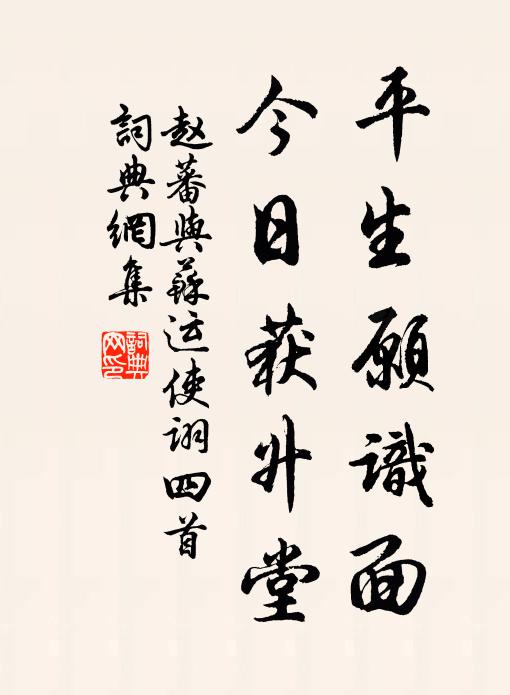 平生願識面
今日获升堂
赵蕃與蘇运使诩四首
詞典網集
詞典网印